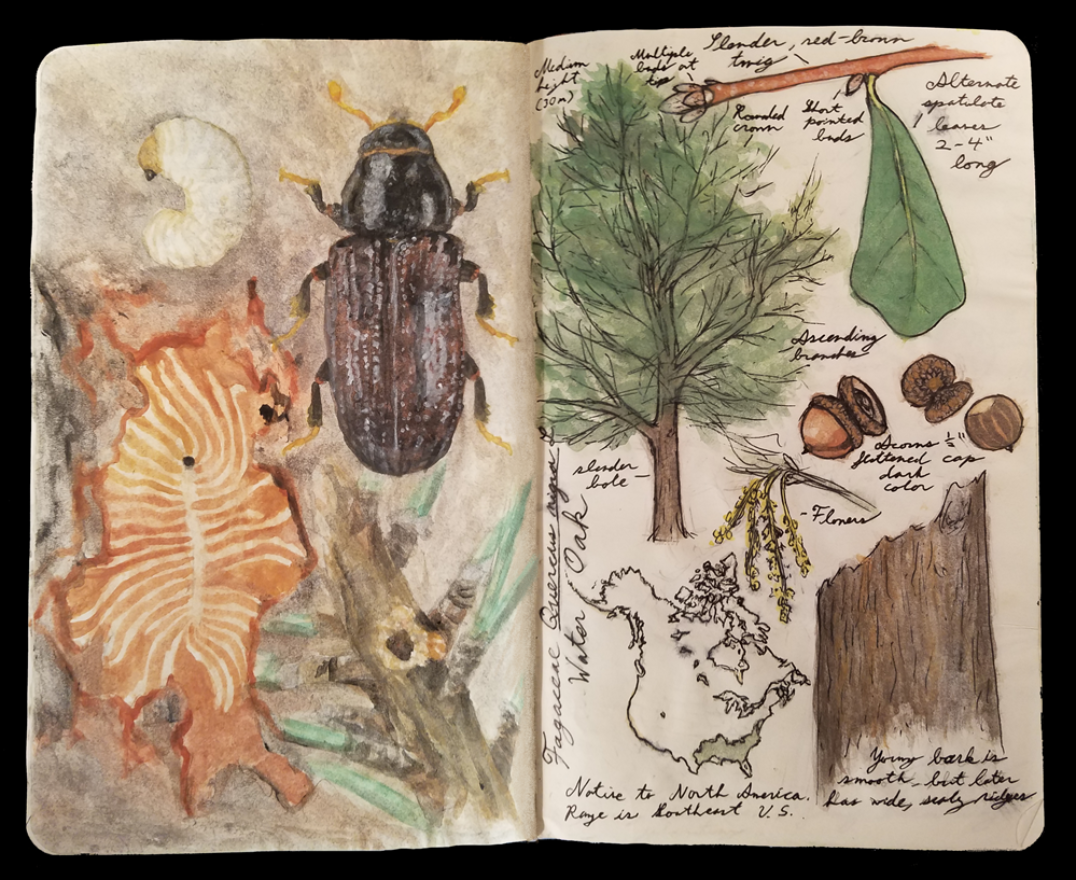 Slender, red-brown
twig
Multiple
buds at
tip
Medium
height
(30m)
Rounded
crown
Short
pointed
buds
Alternate
spatulate
leaves
2-4"
long
Ascending
branches
Acorns ½"
flattened cap
dark
color
slender
bole -
- Flowers
Fagaceae Quercus nigra L
Water Oak
Native to North America.
Range is Southeast U.S.
Young bark is
smooth, but later
has wide, scaly ridges